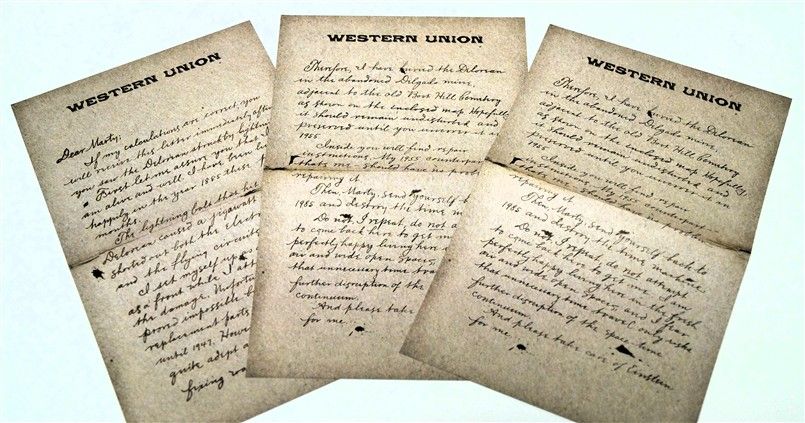 WESTERN UNION
Dear Marty;
If my calculations are correct, you
will receive this letter immediately after
you saw the Delorean struck by lightning
First let me assure you that I
am alive and well. I have been
happily in the year 1885 these
months.
The lightning bolt that
Delorean caused a gigawatt
shorted out both the
and the flying
I set myself up
as a front while I
the damage.
proved impossible
replacement parts
until 1947.
quite adept
fixing
WESTERN UNION
Therefore, I have buried the Delorean
in the abandoned Delgado mine,
adjacent to the old Boot Hill Cemetery
as shown on the enclosed map. Hopefully,
it should remain undisturbed and
preserved until you uncover it in
1955
Inside you will find repair
instructions. My 1955
thats me - should have no
repairing it
Then, Marty, send yourself
1985 and destroy the time
Do not, I repeat, do not
to come back here to get me
perfectly happy living here
air and wide open spaces
that unnecessary time
further disruption of the
continuum.
And please take
for me.
WESTERN UNION
Therefore, I have buried the Delorean
in the abandoned Delgado mine,
adjacent to the old Boot Hill Cemetery
as shown on the enclosed map. Hopefully,
it should remain undisturbed and
preserved until you uncover it in
1955
Inside you will find repair
instructions. My 1955
should have no problem
repairing it
Then, Marty, send yourself back to
1985 and destroy the time machine
Do not, I repeat, do not attempt
to come back here to get me. I'm
perfectly happy living here in the fresh
air and wide open spaces, and I fear
that unnecessary time travel only risks
further disruption of the space-time
continuum.
And please take care of Einstein
for me.